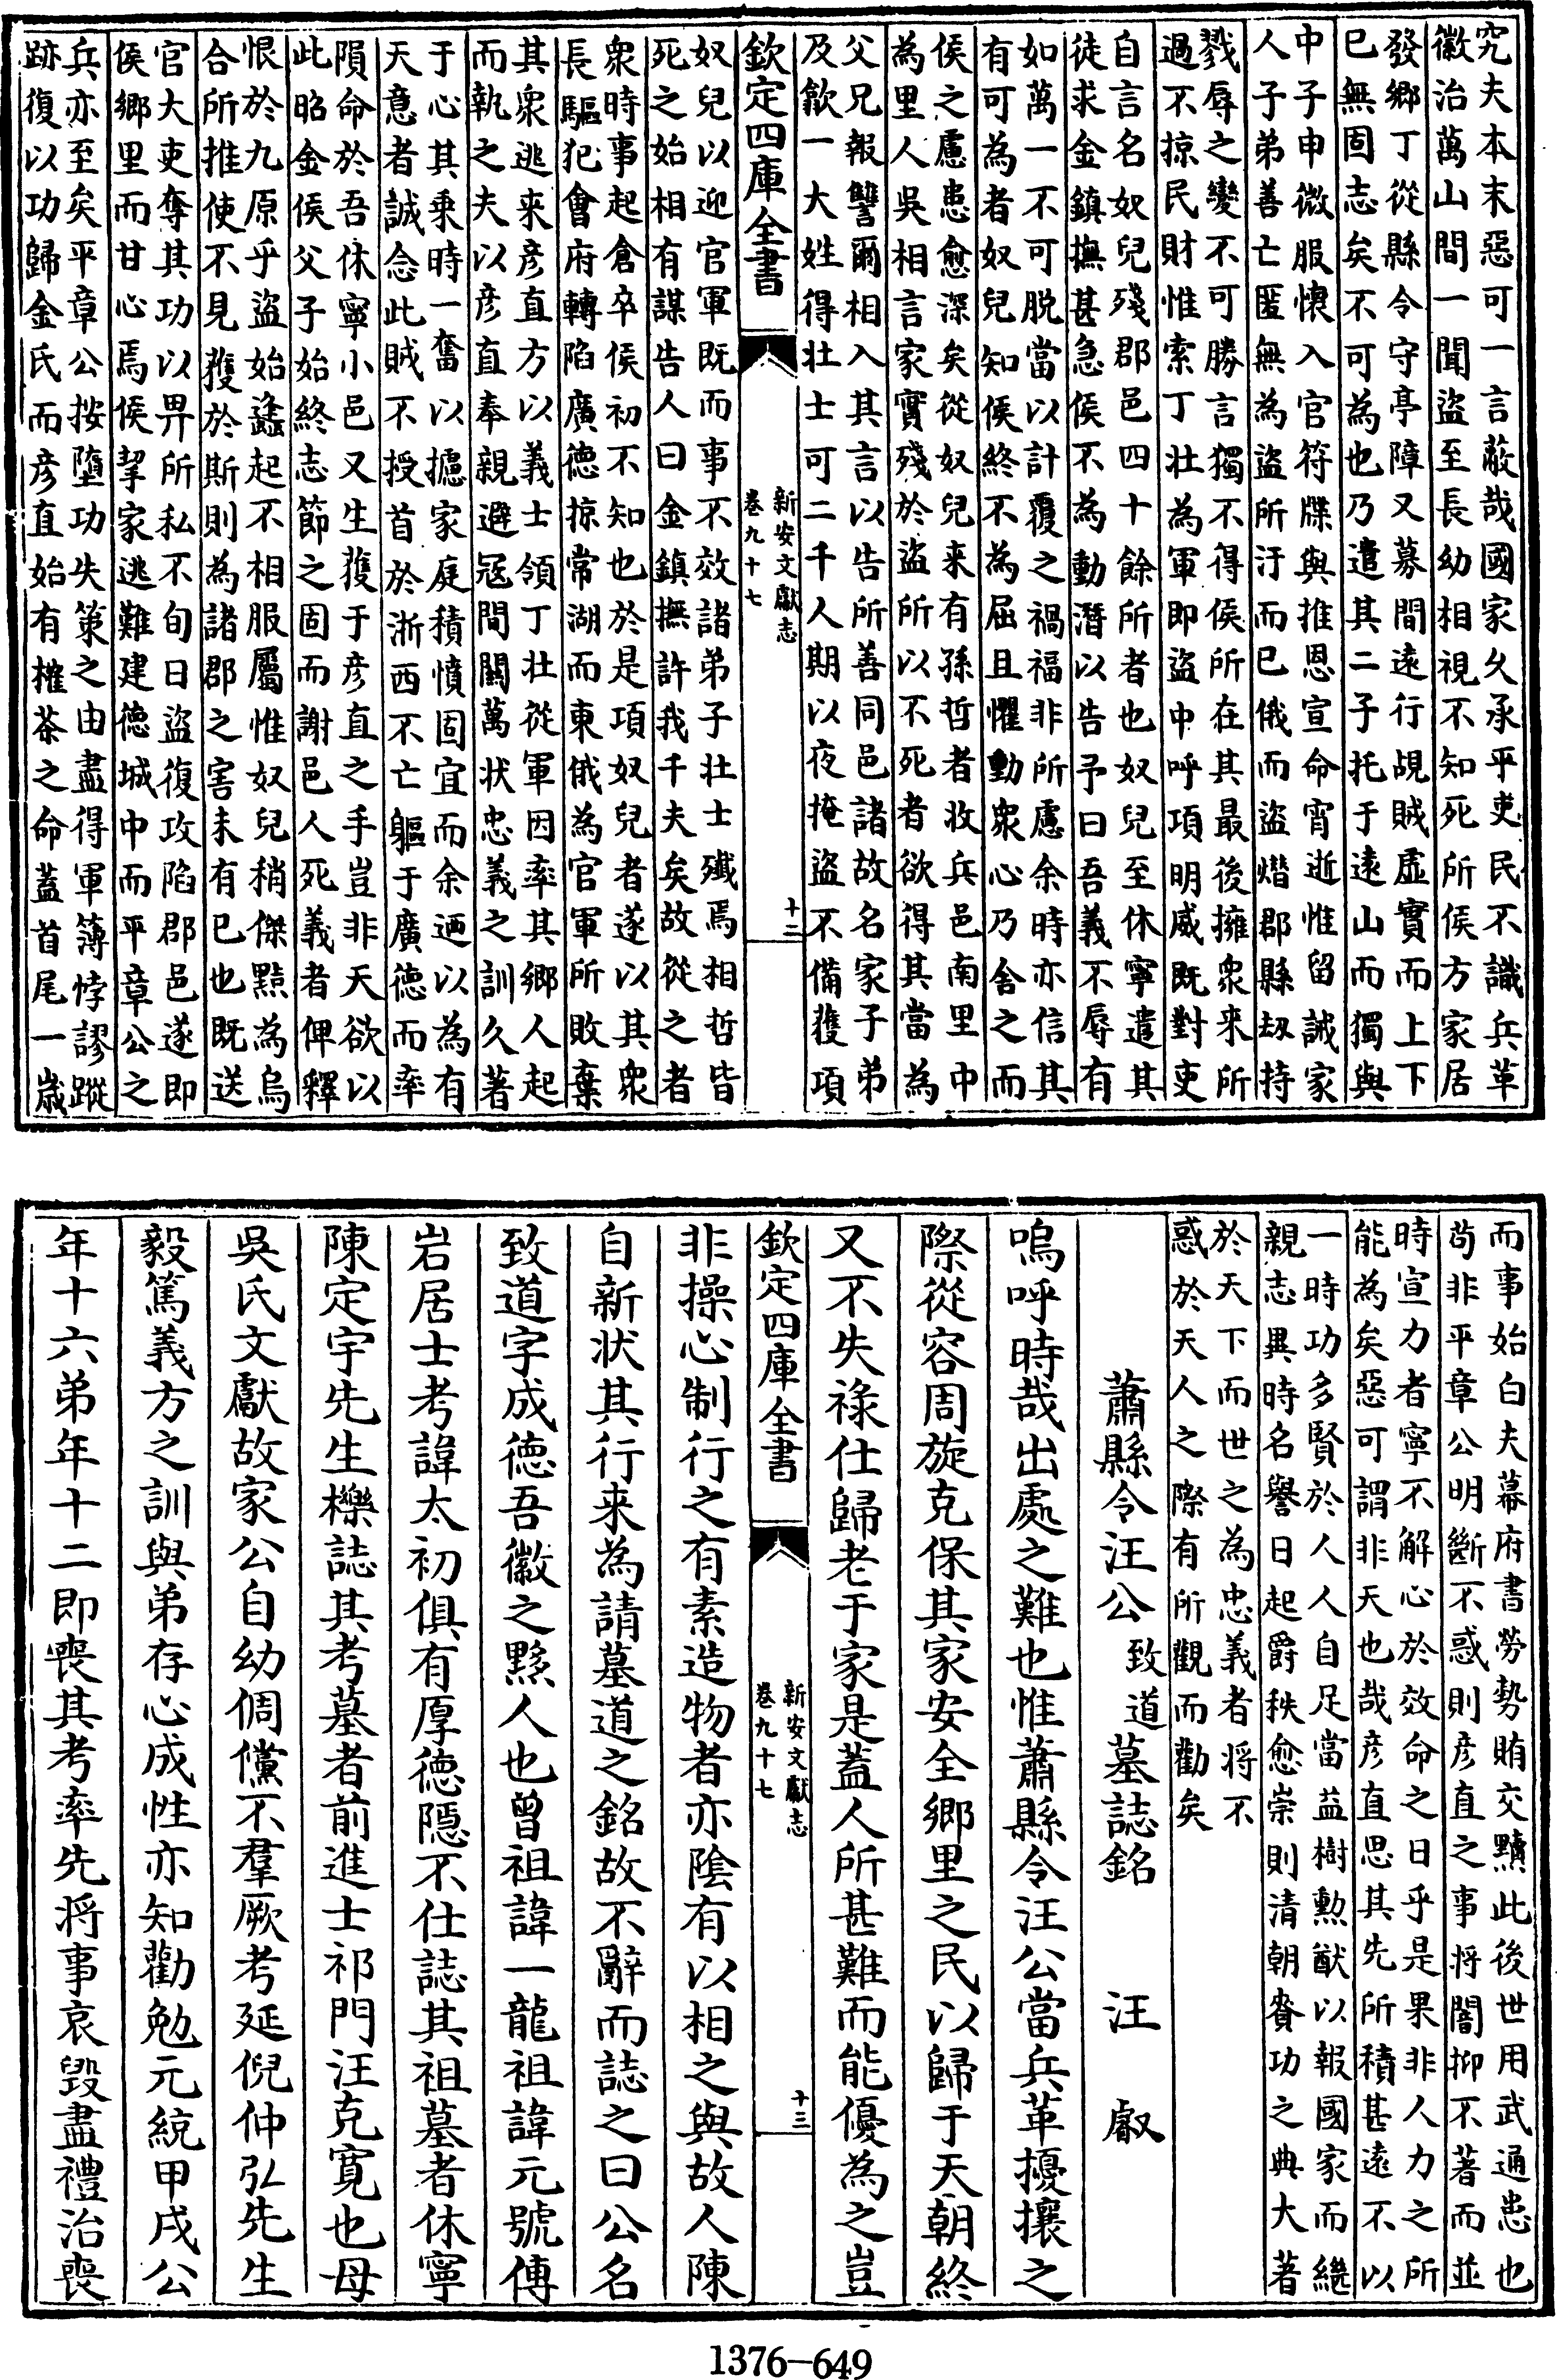 究夫本末惡可一言蔽哉國家久承平吏民不識兵革
徽治萬山間一聞盜至長幼相視不知死所侯方家居
發鄉丁從縣令守亭障又募間遠行覘賊虛實而上下
已無固志矣不可為也乃遣其二子托于遠山而獨與
中子申微服懷入官符牒與推恩宣命宵逝惟留誡家
人子弟善亡匿無為盜所汙而已俄而盜熸郡縣刼持
戮辱之變不可勝言獨不得侯所在其最後擁衆来所
過不掠民財惟索丁壮為軍即盜中呼項明威既對吏
自言名奴兒殘郡邑四十餘所者也奴兒至休寧遣其
徒求金鎮撫甚急侯不為動潛以告予曰吾義不辱有
如萬一不可脱當以計覆之禍福非所慮余時亦信其
有可為者奴兒知侯終不為屈且懼動衆心乃舍之而
侯之慮患愈深矣從奴兒来有孫哲者收兵邑南里中
為里人吳相言家實殘於盜所以不死者欲得其當為
父兄報讐爾相入其言以告所善同邑諸故名家子弟
及歙一大姓得壮士可二千人期以夜掩盜不備獲項
欽定四庫全書
新安文獻志
卷九十七
十二
奴兒以迎官軍既而事不效諸弟子壮士殲焉相哲皆
死之始相有謀告人曰金鎮撫許我千夫矣故從之者
衆時事起倉卒侯初不知也於是項奴兒者遂以其衆
長驅犯會府轉陷廣德掠常湖而東俄為官軍所敗棄
其衆逃来彦直方以義士領丁壮從軍因率其鄉人起
而執之夫以彦直奉親避冦間關萬狀忠義之訓久著
于心其乗時一奮以攄家庭積憤固宜而余廼以為有
天意者誠念此賊不授首於浙西不亡軀于廣德而率
隕命於吾休寧小邑又生獲于彦直之手豈非天欲以
此昭金侯父子始終志節之固而謝邑人死義者俾釋
恨於九原乎盜始蠭起不相服屬惟奴兒稍傑黠為烏
合所推使不見獲於斯則為諸郡之害未有已也既送
官大吏奪其功以畀所私不旬日盜復攻陷郡邑遂即
侯鄉里而甘心焉侯挈家逃難建德城中而平章公之
兵亦至矣平章公按墮功失策之由盡得軍簿悖謬蹤
跡復以功歸金氏而彦直始有榷茶之命蓋首尾一歲
而事始白夫幕府書勞勢賄交黷此後世用武通患也
茍非平章公明斷不惑則彦直之事将闇抑不著而並
時宣力者寧不解心於效命之日乎是果非人力之所
能為矣惡可謂非天也哉彦直思其先所積甚遠不以
一時功多賢於人人自足當益樹勲猷以報國家而繼
親志異時名譽日起爵秩愈崇則清朝賚功之典大著
於天下而世之為忠義者将不
惑於天人之際有所觀而勸矣
蕭縣令汪公致道墓誌銘　汪叡
嗚呼時哉出處之難也惟蕭縣令汪公當兵革擾攘之
際從容周旋克保其家安全鄉里之民以歸于天朝終
又不失祿仕歸老于家是蓋人所甚難而能優為之豈
欽定四庫全書
新安文獻志
卷九十七
十三
非操心制行之有素造物者亦陰有以相之與故人陳
自新状其行来為請墓道之銘故不辭而誌之曰公名
致道字成德吾徽之黟人也曾祖諱一龍祖諱元號傅
岩居士考諱太初俱有厚德隱不仕誌其祖墓者休寧
陳定宇先生櫟誌其考墓者前進士祁門汪克寛也母
吳氏文獻故家公自幼倜儻不羣厥考延倪仲弘先生
毅篤義方之訓與弟存心成性亦知勸勉元統甲戌公
年十六弟年十二即喪其考率先将事哀毀盡禮治喪
1376—649